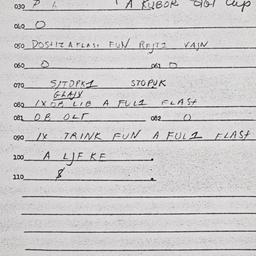 030 P L A KUBOK
040 O
050 DOSITZ A FLASH FUN REJTZ VAJN
060 O 061 O
070 SJTOPK1 STOPJK
GLAJX
080 IX OB LIB A FUL1 FLASH
081 OB OLT 082 O
090 IX TRINK FUN A FUL1 FLASH
100 A LJFKE
110